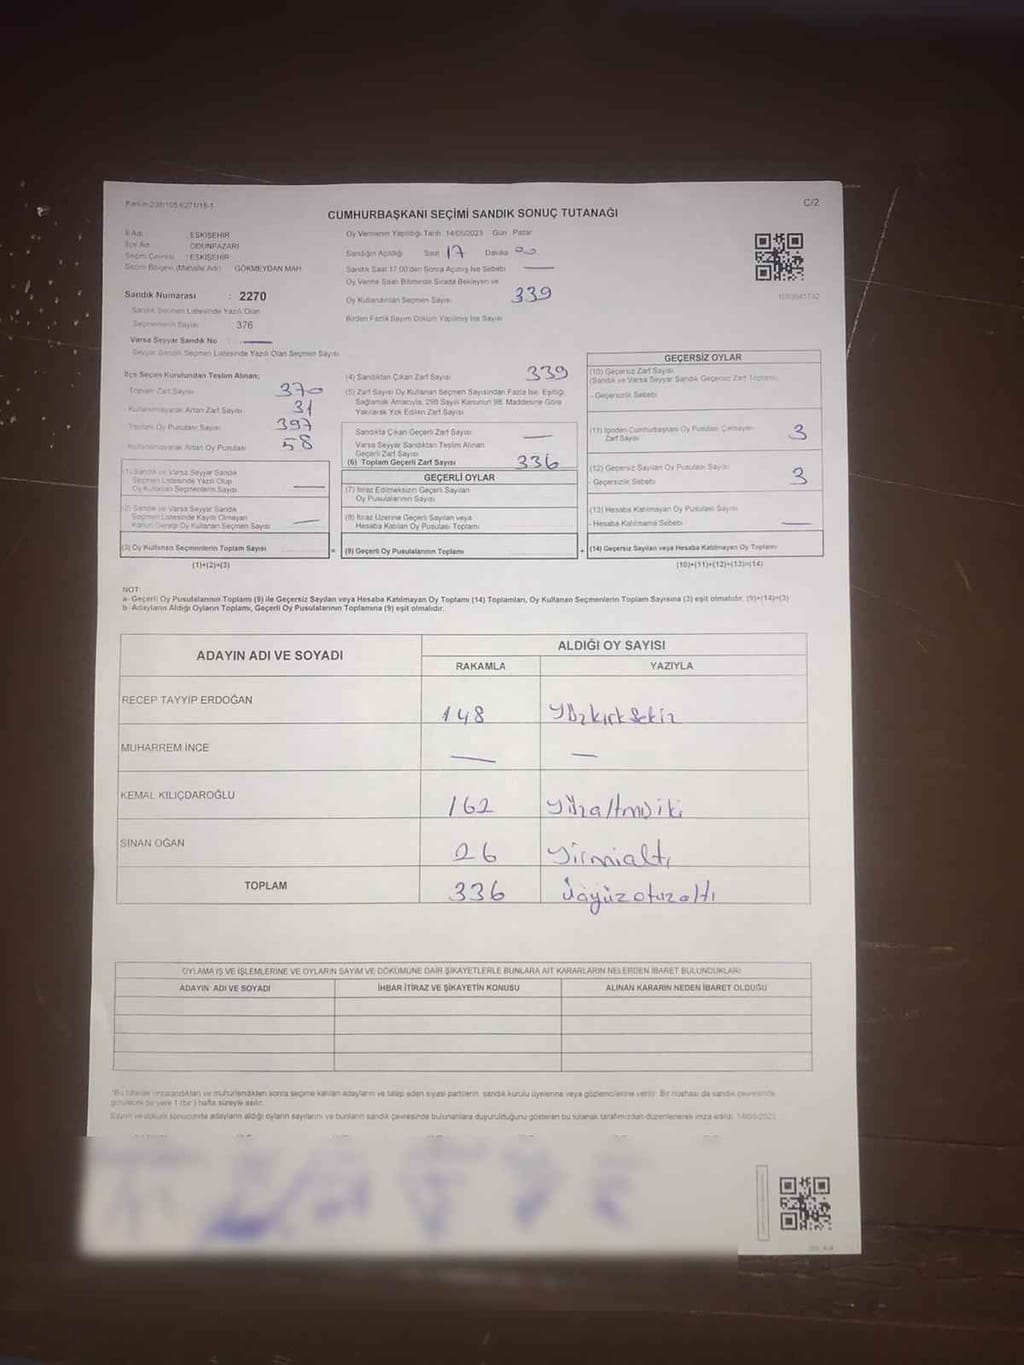 C/2
CUMHURBAŞKANI SEÇİMİ SANDIK SONUÇ TUTANAĞI
İl Adı : ESKİŞEHİR
İlçe Adı : ODUNPAZARI
Seçim Çevresi : ESKİŞEHİR
Seçim Bölgesi (Mahalle Adı) : GÖKMEYDAN MAH.
Sandık Numarası : 2270
Sandık Seçmen Listesinde Yazılı Olan
Seçmenlerin Sayısı 376
Varsa Seyyar Sandık No : —
Seyyar Sandık Seçmen Listesinde Yazılı Olan Seçmen Sayısı
Oy Vermenin Yapıldığı Tarih 14/05/2023 Gün Pazar
Sandığın Açıldığı Saat 17 Dakika 00
Sandık Saat 17.00'den Sonra Açılmış İse Sebebi —
Oy Verme Saati Bitiminde Sırada Bekleyen ve
Oy Kullandırılan Seçmen Sayısı 339
Birden Fazla Sayım Döküm Yapılmış İse Sayısı
İlçe Seçim Kurulundan Teslim Alınan;
Toplam Zarf Sayısı 370
Kullanılmayarak Artan Zarf Sayısı 31
Toplam Oy Pusulası Sayısı 397
Kullanılmayarak Artan Oy Pusulası 58
(1) Sandık ve Varsa Seyyar Sandık
Seçmen Listesinde Yazılı Olup
Oy Kullanan Seçmenlerin Sayısı —
(2) Sandık ve Varsa Seyyar Sandık
Seçmen Listesinde Kayıtlı Olmayan
Kanun Gereği Oy Kullanan Seçmen Sayısı —
(3) Oy Kullanan Seçmenlerin Toplam Sayısı =
(1)+(2)=(3)
(4) Sandıktan Çıkan Zarf Sayısı 339
(5) Zarf Sayısı Oy Kullanan Seçmen Sayısından Fazla İse, Eşitliği
Sağlamak Amacıyla, 298 Sayılı Kanunun 98. Maddesine Göre
Yakılarak Yok Edilen Zarf Sayısı
Sandıkta Çıkan Geçerli Zarf Sayısı —
Varsa Seyyar Sandıktan Teslim Alınan
Geçerli Zarf Sayısı
(6) Toplam Geçerli Zarf Sayısı 336
GEÇERLİ OYLAR
(7) İtiraz Edilmeksizin Geçerli Sayılan
Oy Pusulalarının Sayısı
(8) İtiraz Üzerine Geçerli Sayılan veya
Hesaba Katılan Oy Pusulası Toplamı
(9) Geçerli Oy Pusulalarının Toplamı +
GEÇERSİZ OYLAR
(10) Geçersiz Zarf Sayısı
(Sandık ve Varsa Seyyar Sandık Geçersiz Zarf Toplamı)
- Geçersizlik Sebebi
(11) İçinden Cumhurbaşkanı Oy Pusulası Çıkmayan
Zarf Sayısı 3
(12) Geçersiz Sayılan Oy Pusulası Sayısı
- Geçersizlik Sebebi 3
(13) Hesaba Katılmayan Oy Pusulası Sayısı
- Hesaba Katılmama Sebebi —
(14) Geçersiz Sayılan veya Hesaba Katılmayan Oy Toplamı
(10)+(11)+(12)+(13)=(14)
NOT:
a- Geçerli Oy Pusulalarının Toplamı (9) ile Geçersiz Sayılan veya Hesaba Katılmayan Oy Toplamı (14) Toplamları, Oy Kullanan Seçmenlerin Toplam Sayısına (3) eşit olmalıdır. (9)+(14)=(3)
b- Adayların Aldığı Oyların Toplamı, Geçerli Oy Pusulalarının Toplamına (9) eşit olmalıdır.
ADAYIN ADI VE SOYADI ALDIĞI OY SAYISI
RAKAMLA YAZIYLA
RECEP TAYYİP ERDOĞAN 148 Yüzkırksekiz
MUHARREM İNCE — —
KEMAL KILIÇDAROĞLU 162 Yüzaltmışiki
SİNAN OĞAN 26 Yirmialtı
TOPLAM 336 Üçyüzotuzaltı
OYLAMA İŞ VE İŞLEMLERİNE VE OYLARIN SAYIM VE DÖKÜMÜNE DAİR ŞİKAYETLERLE BUNLARA AİT KARARLARIN NELERDEN İBARET BULUNDUKLARI
ADAYIN ADI VE SOYADI İHBAR İTİRAZ VE ŞİKAYETİN KONUSU ALINAN KARARIN NEDEN İBARET OLDUĞU
*Bu tutanak imzalandıktan ve mühürlendikten sonra seçime katılan adayların ve talep eden siyasi partilerin, sandık kurulu üyelerine veya gözlemcilerine verilir. Bir nüshası da sandık çevresinde
görülecek bir yere 1 (bir) hafta süreyle asılır.
Sayım ve döküm sonucunda adayların aldığı oyların sayılarını ve bunların sandık çevresinde bulunanlara duyurulduğunu gösteren bu tutanak tarafımızdan düzenlenerek imza edildi. 14/05/2023